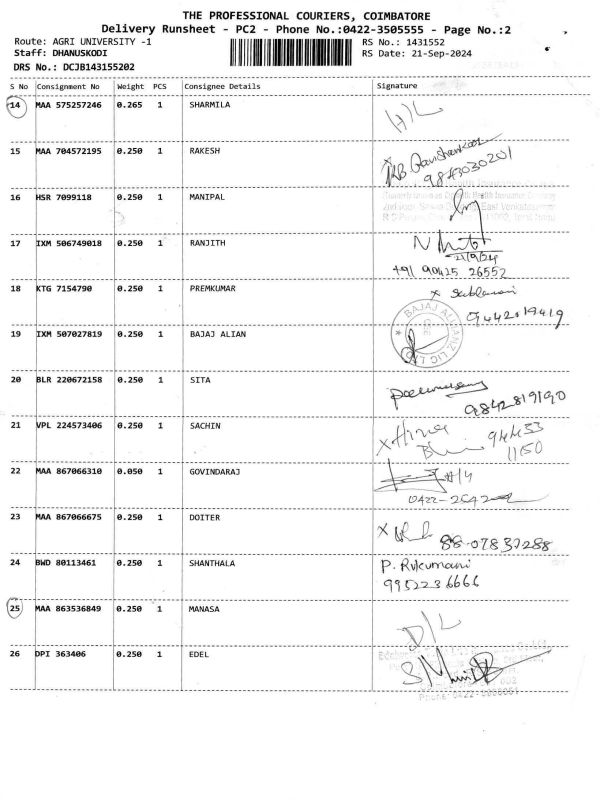 THE PROFESSIONAL COURIERS, COIMBATORE
Delivery Runsheet - PC2 - Phone No.:0422-3505555 - Page No.:2
Route: AGRI UNIVERSITY -1 RS No.: 1431552
Staff: DHANUSKODI RS Date: 21-Sep-2024
DRS No.: DCJB143155202
S No Consignment No Weight PCS Consignee Details Signature
14 MAA 575257246 0.265 1 SHARMILA
15 MAA 704572195 0.250 1 RAKESH
9843030201
16 HSR 7099118 0.250 1 MANIPAL
17 IXM 506749018 0.250 1 RANJITH
21/9/24
+91 90425 26552
18 KTG 7154790 0.250 1 PREMKUMAR
9442019419
19 IXM 507027819 0.250 1 BAJAJ ALIAN
BAJAJ ALLIANZ LIC LTD
20 BLR 220672158 0.250 1 SITA
9842819190
21 VPL 224573406 0.250 1 SACHIN
94433
11150
22 MAA 867066310 0.050 1 GOVINDARAJ
0422-2642
23 MAA 867066675 0.250 1 DOITER
88-07837288
24 BWD 80113461 0.250 1 SHANTHALA P. Rukumani
9952236666
25 MAA 863536849 0.250 1 MANASA D/L
26 DPI 363406 0.250 1 EDEL